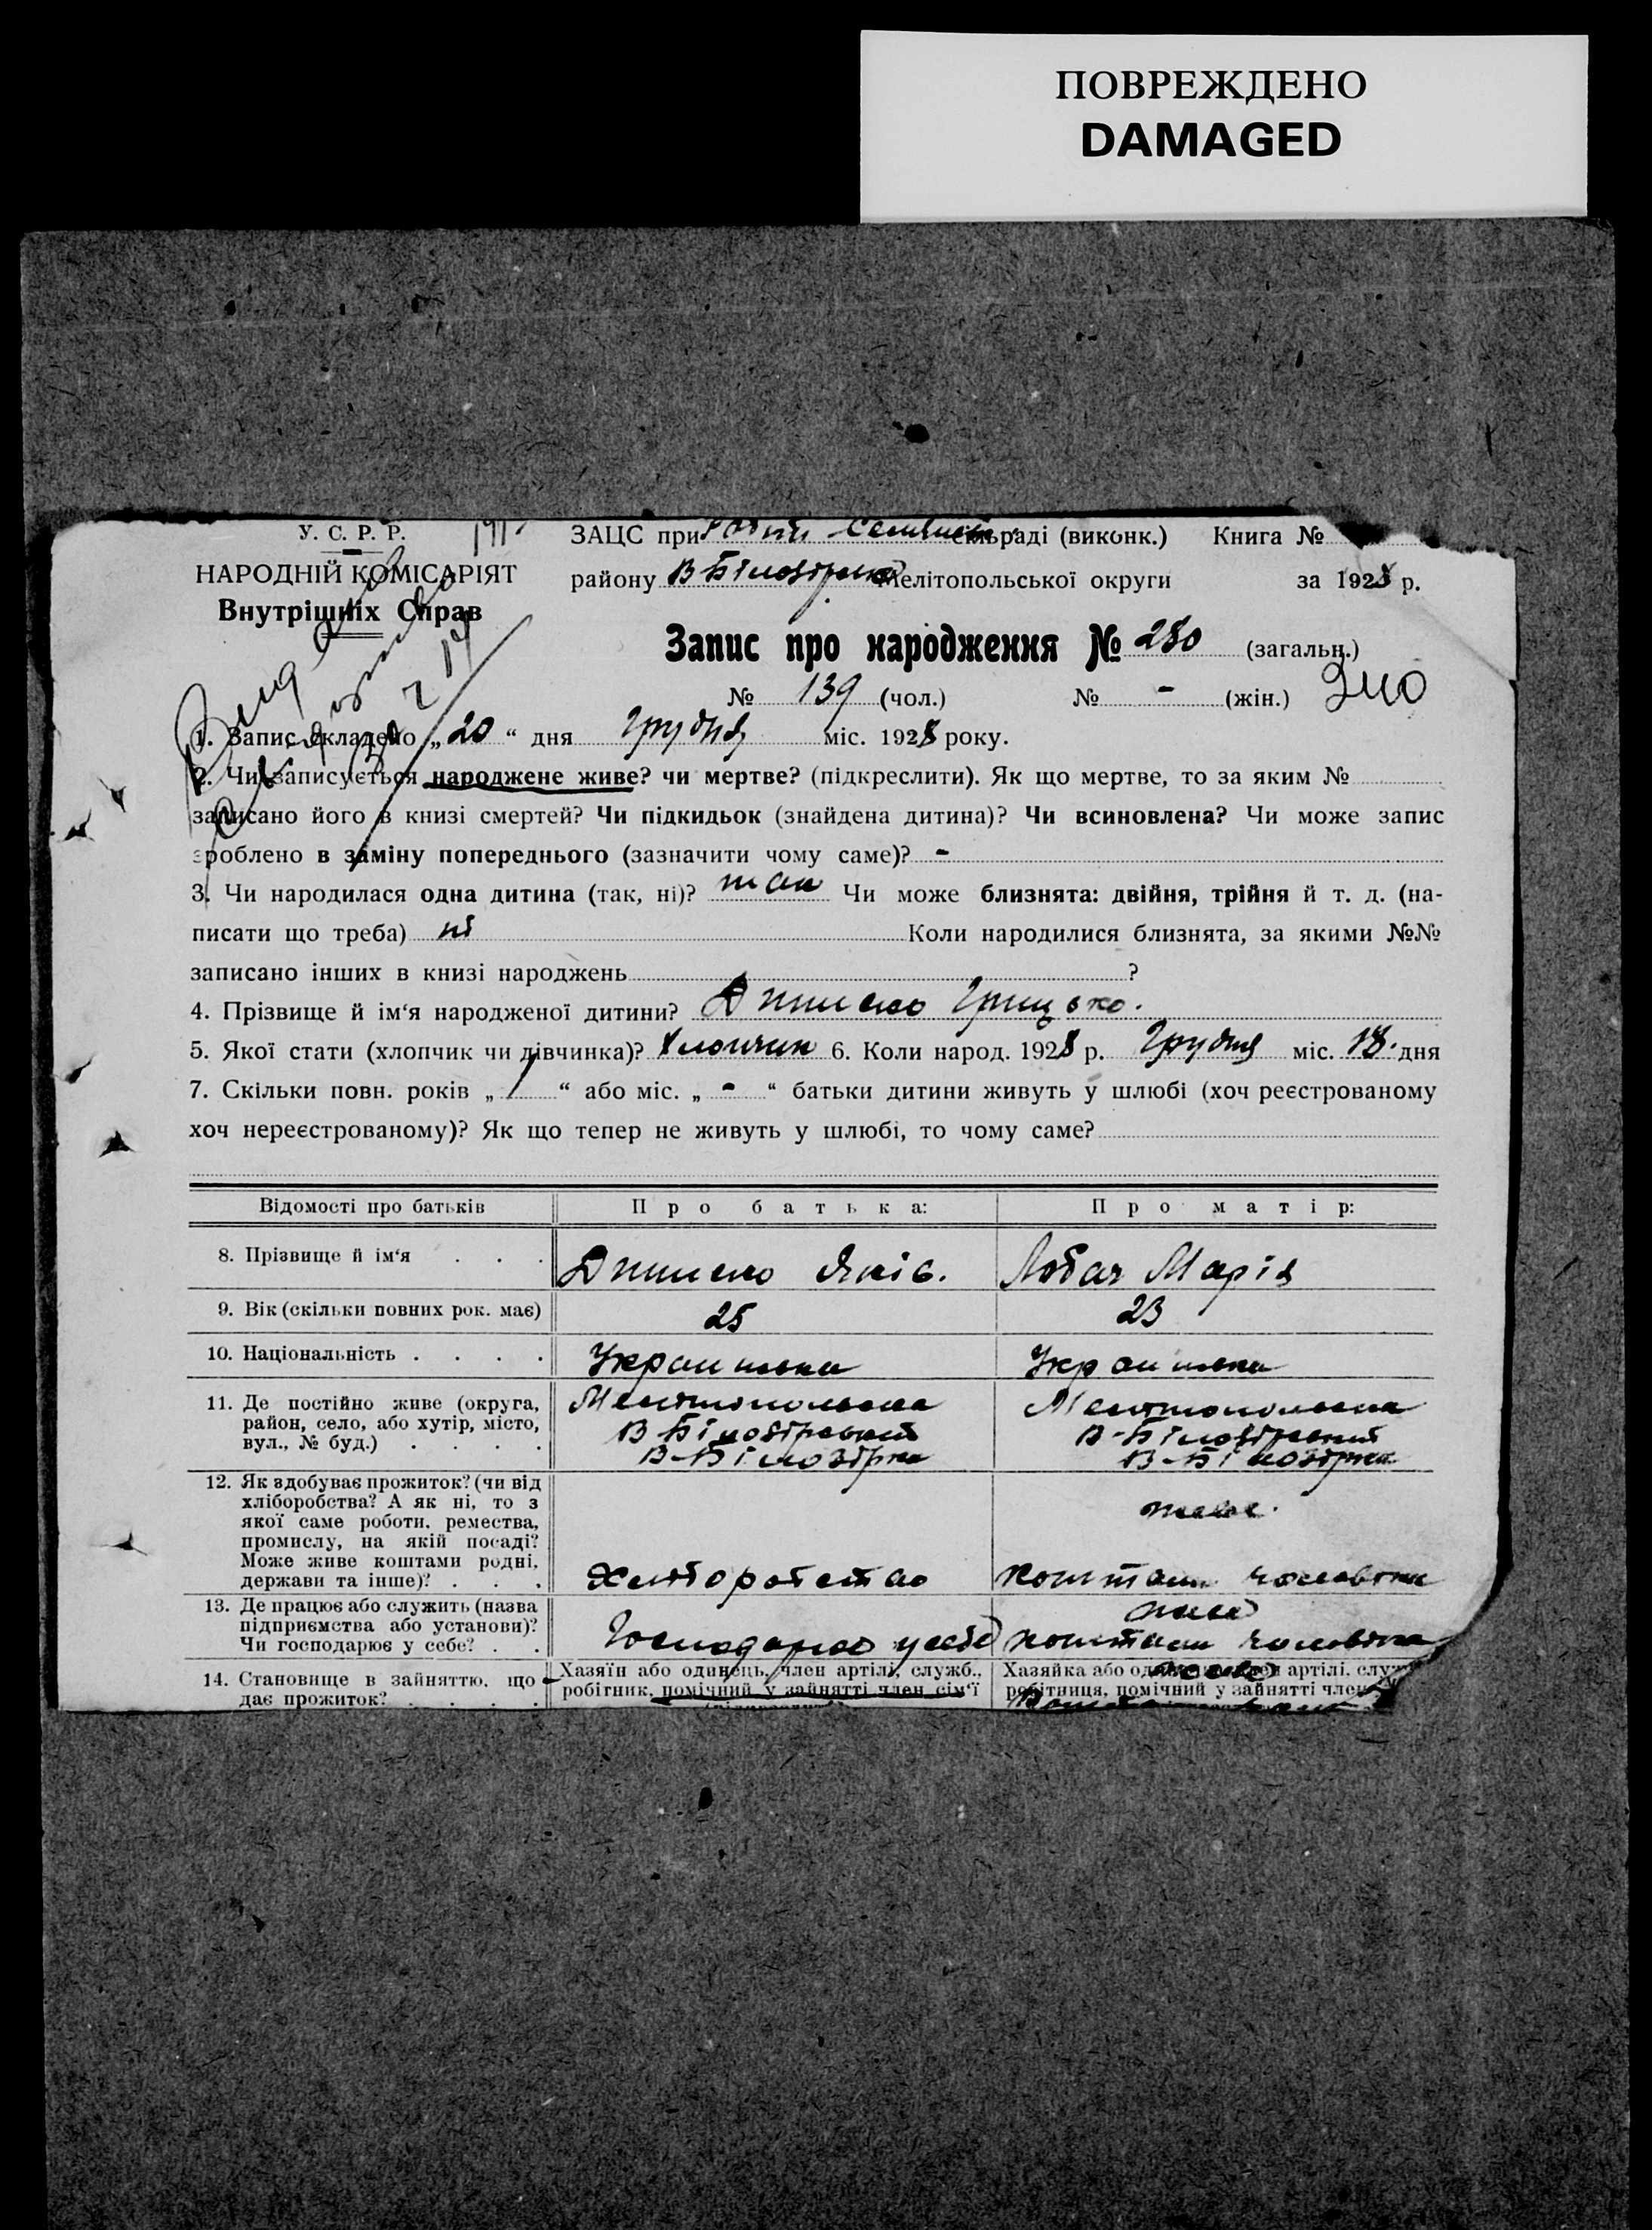 ПОВРЕЖДЕНО
DAMAGED
У. С. Р. Р.
НАРОДНІЙ КОМІСАРІЯТ
Внутрішніх Справ
ЗАЦС при сільраді (виконк.) Книга №
району В-Білозірка Мелітопольської округи за 1928 р.
Запис про народження № 280 (загальн.)
№ 139 (чол.) № - (жін.) 240
1. Запис складено „20“ дня Грудня міс. 1928 року.
2. Чи записується народжене живе? чи мертве? (підкреслити). Як що мертве, то за яким №
записано його в книзі смертей? Чи підкидьок (знайдена дитина)? Чи всиновлена? Чи може запис
зроблено в заміну попереднього (зазначити чому саме)? -
3. Чи народилася одна дитина (так, ні)? так Чи може близнята: двійня, трійня й т. д. (на-
писати що треба) ні Коли народилися близнята, за якими №№
записано інших в книзі народжень ?
4. Прізвище й ім‘я народженої дитини? Грицько.
5. Якої стати (хлопчик чи дівчинка)? Хлопчик 6. Коли народ. 1928 р. Грудня міс. 18. дня
7. Скільки повн. років „ 1 “ або міс. „ - “ батьки дитини живуть у шлюбі (хоч реєстрованому
хоч нереєстрованому)? Як що тепер не живуть у шлюбі, то чому саме?
Відомості про батьків Про батька: Про матір:
8. Прізвище й ім‘я . . . Яків. Лобач Марія
9. Вік (скільки повних рок. має) 25 23
10. Національність . . . . Українська Українська
11. Де постійно живе (округа, Мелітопольська Мелітопольська
район, село, або хутір, місто, В-Білозірський В-Білозірський
вул., № буд.) . . . . В-Білозірка В-Білозірка
12. Як здобуває прожиток? (чи від
хліборобства? А як ні, то з
якої саме роботи, ремества, живе.
промислу, на якій посаді?
Може живе коштами родні,
держави та інше)? . . . Хліборобство коштами чоловіка
13. Де працює або служить (назва
підприємства або установи)? живе
Чи господарює у себе? . . Господарює у себе коштами чоловіка
14. Становище в зайняттю, що Хазяїн або одинець, член артілі, служб., Хазяйка або член артілі,
дає прожиток? . . . . робітник, помічний у зайнятті член сім‘ї робітниця, помічний у зайнятті член